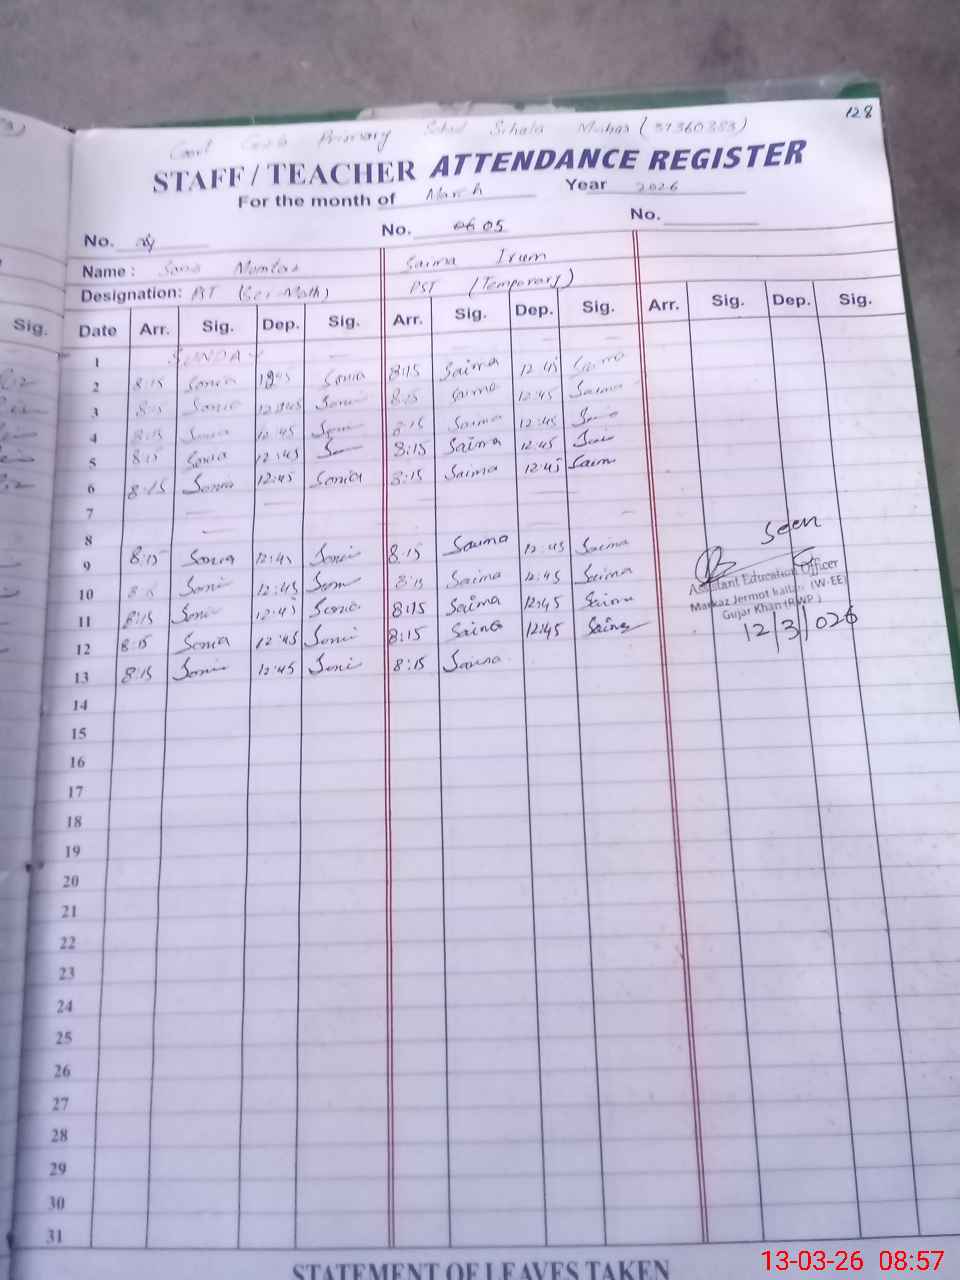 128
Primary School Sihala (37360383)
STAFF / TEACHER ATTENDANCE REGISTER
For the month of March Year 2026
No. No. 05 No.
Name : Momtaz Saima Irum
Designation: PST (Sci-Math) PST (Temporary)
Sig. Date Arr. Sig. Dep. Sig. Arr. Sig. Dep. Sig. Arr. Sig. Dep. Sig.
1 SUNDAY
2 8:15 Sonia Sonia 8:15 Saima 12:45 Saima
3 8:15 Sonia 12:45 Soni 8:15 Saima 12:45 Saima
4 8:15 Sonia 12:45 Soni 8:15 Saima 12:45
5 8:15 Sonia 12:45 8:15 Saima 12:45
6 8:15 Sonia 12:45 Sonia 8:15 Saima 12:45 Saim
7
8
9 8:15 Sonia 12:45 Soni 8:15 Saima 12:45 Saima
10 Soni 12:45 Soni 8:15 Saima 12:45 Saima
11 8:15 Soni 12:45 Sonia 8:15 Saima 12:45 Saima
12 8:15 Sonia 12:45 Soni 8:15 Saima 12:45 Saima
13 8:15 Soni 12:45 Soni 8:15 Saima
Seen
Assistant Education Officer
Markaz Jermot Kallan (W-EE)
Gujar Khan (RWP)
12/3/026
14
15
16
17
18
19
20
21
22
23
24
25
26
27
28
29
30
31
STATEMENT OF LEAVES TAKEN
13-03-26 08:57